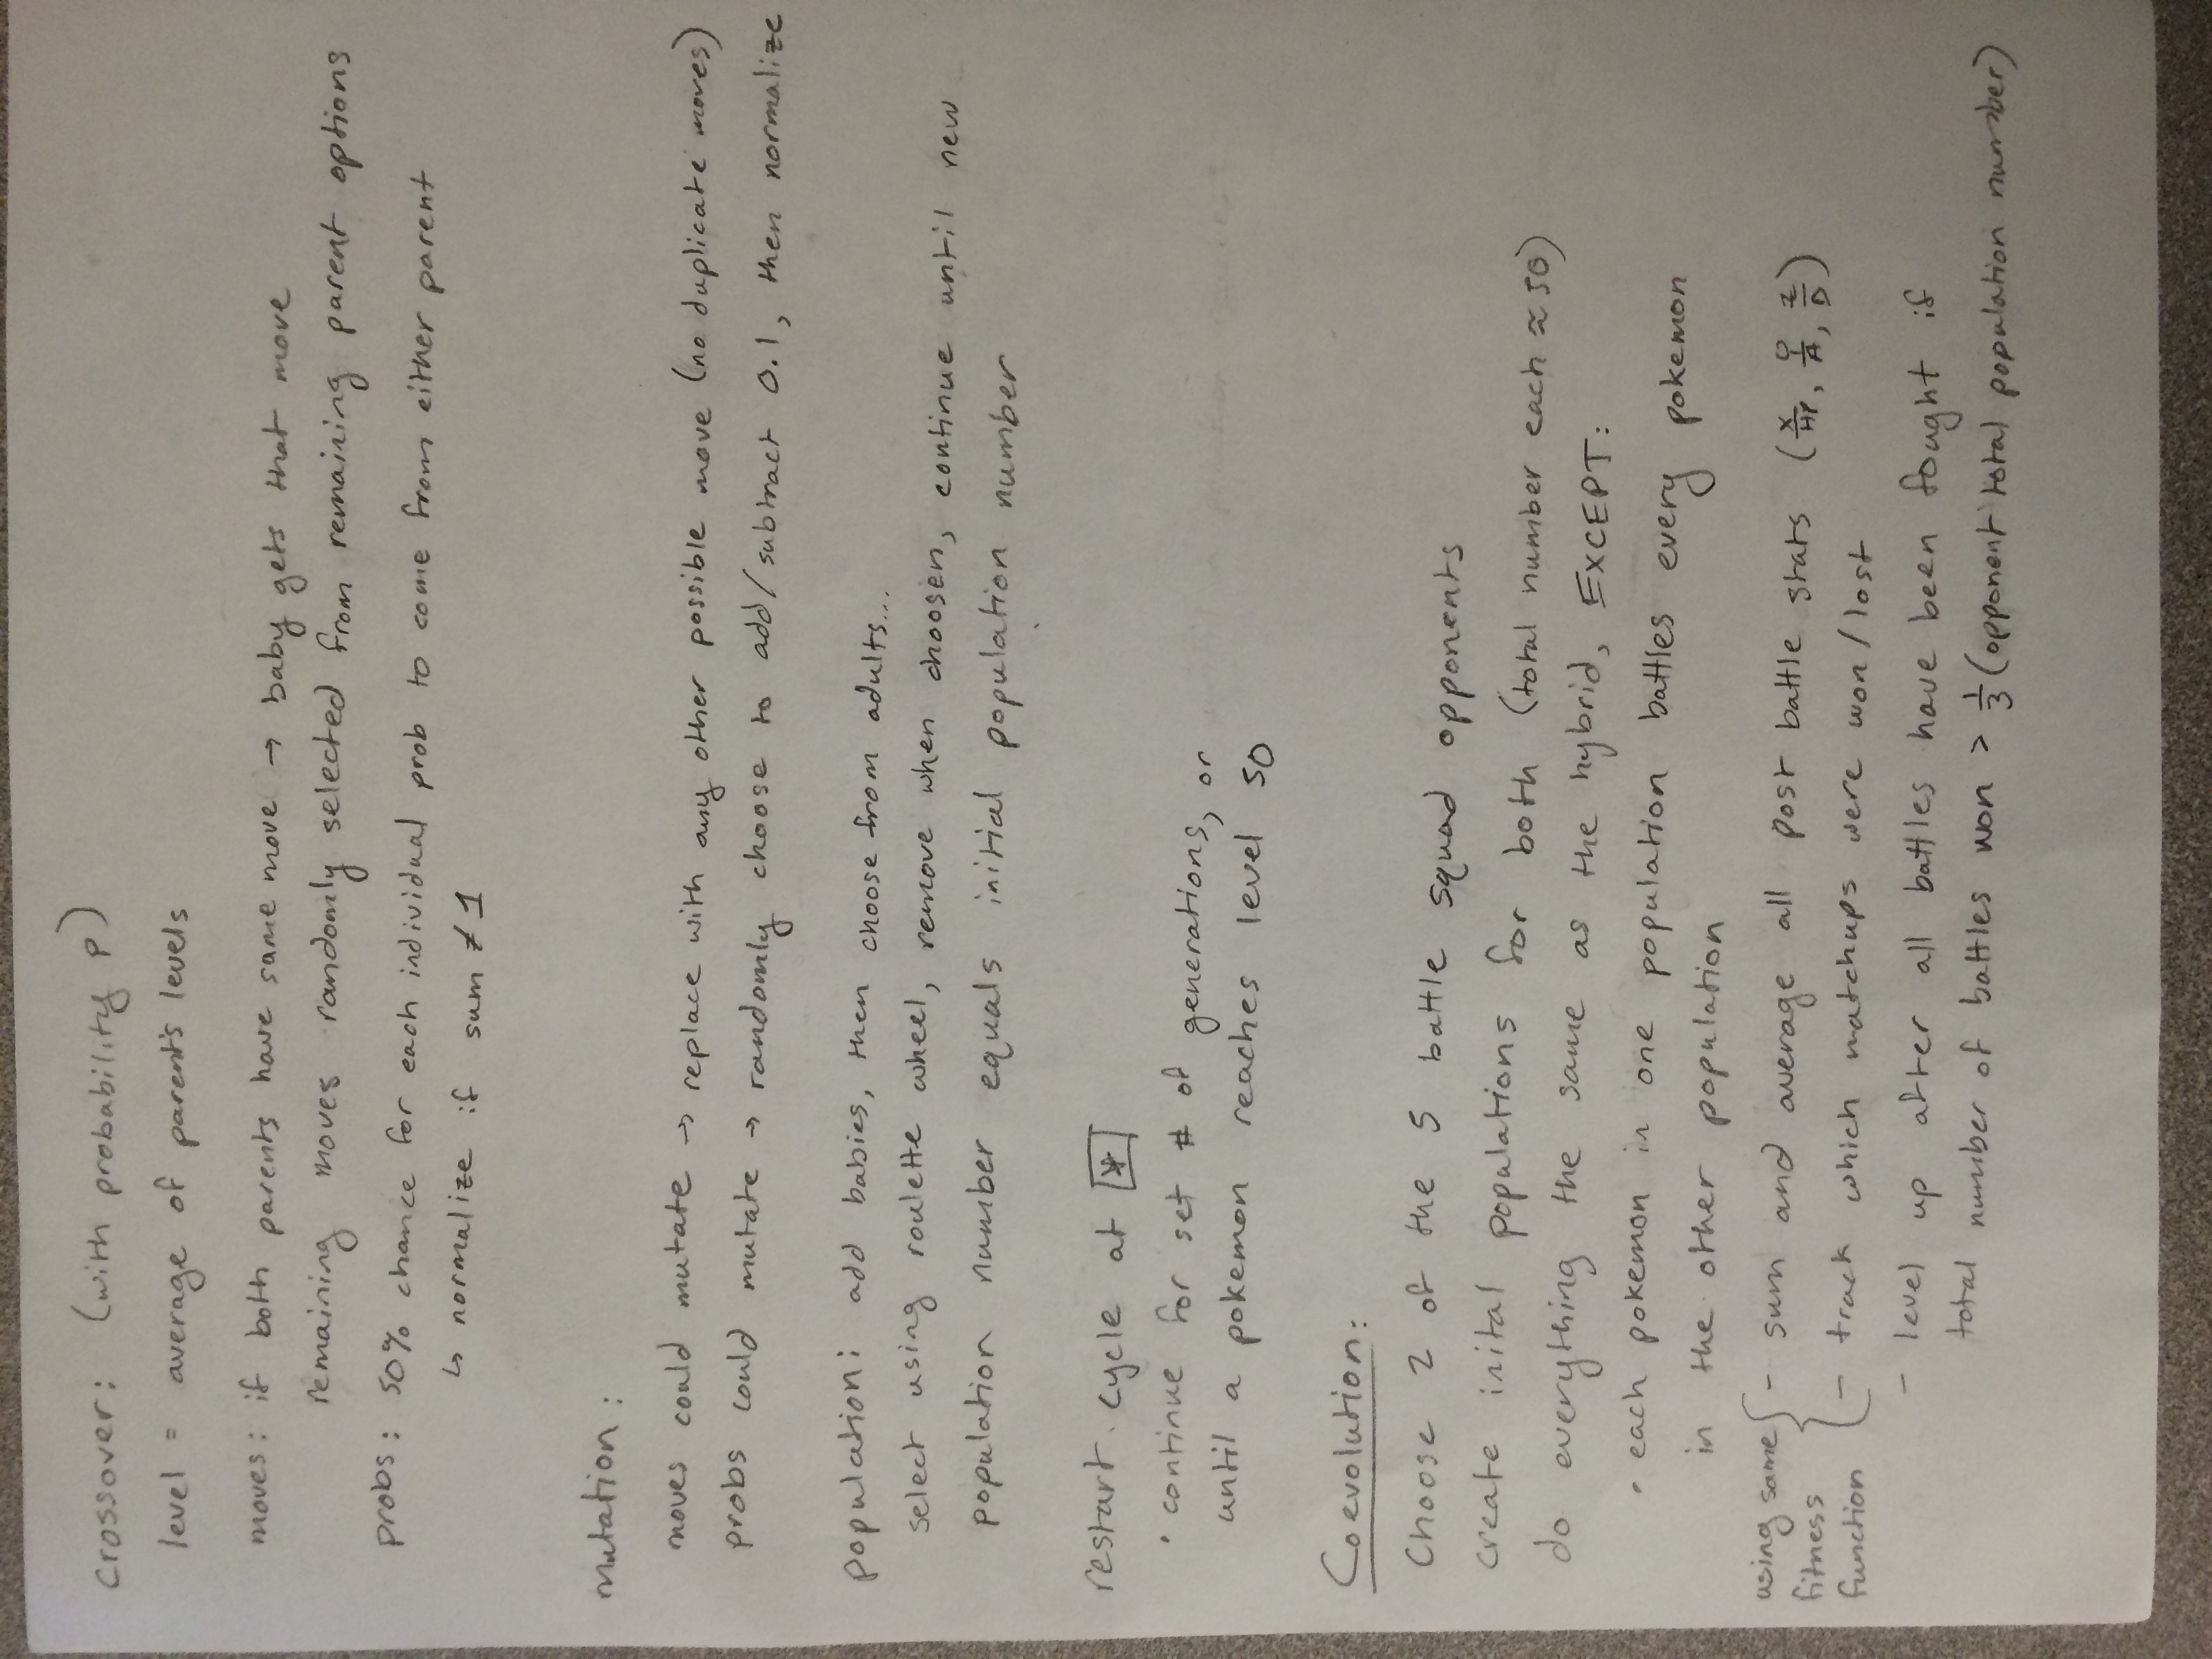 crossover: (with probability p)
level = average of parent's levels
moves: if both parents have same move → baby gets that move
remaining moves randomly selected from remaining parent options
probs: 50% chance for each individual prob to come from either parent
↳ normalize if sum ≠ 1
mutation:
moves could mutate → replace with any other possible move (no duplicate moves)
probs could mutate → randomly choose to add/subtract 0.1, then normalize
population: add babies, then choose from adults...
select using roulette wheel, remove when choosen, continue until new
population number equals initial population number
restart cycle at [*]
• continue for set # of generations, or
until a pokemon reaches level 50
Coevolution:
Choose 2 of the 5 battle squad opponents
create inital populations for both (total number each ≈ 50)
do everything the same as the hybrid, EXCEPT:
• each pokemon in one population battles every pokemon
in the other population
using same fitness function { - sum and average all post battle stats (X/HP, Y/A, Z/D)
- track which matchups were won/lost
- level up after all battles have been fought if
total number of battles won > 1/3 (opponent total population number)